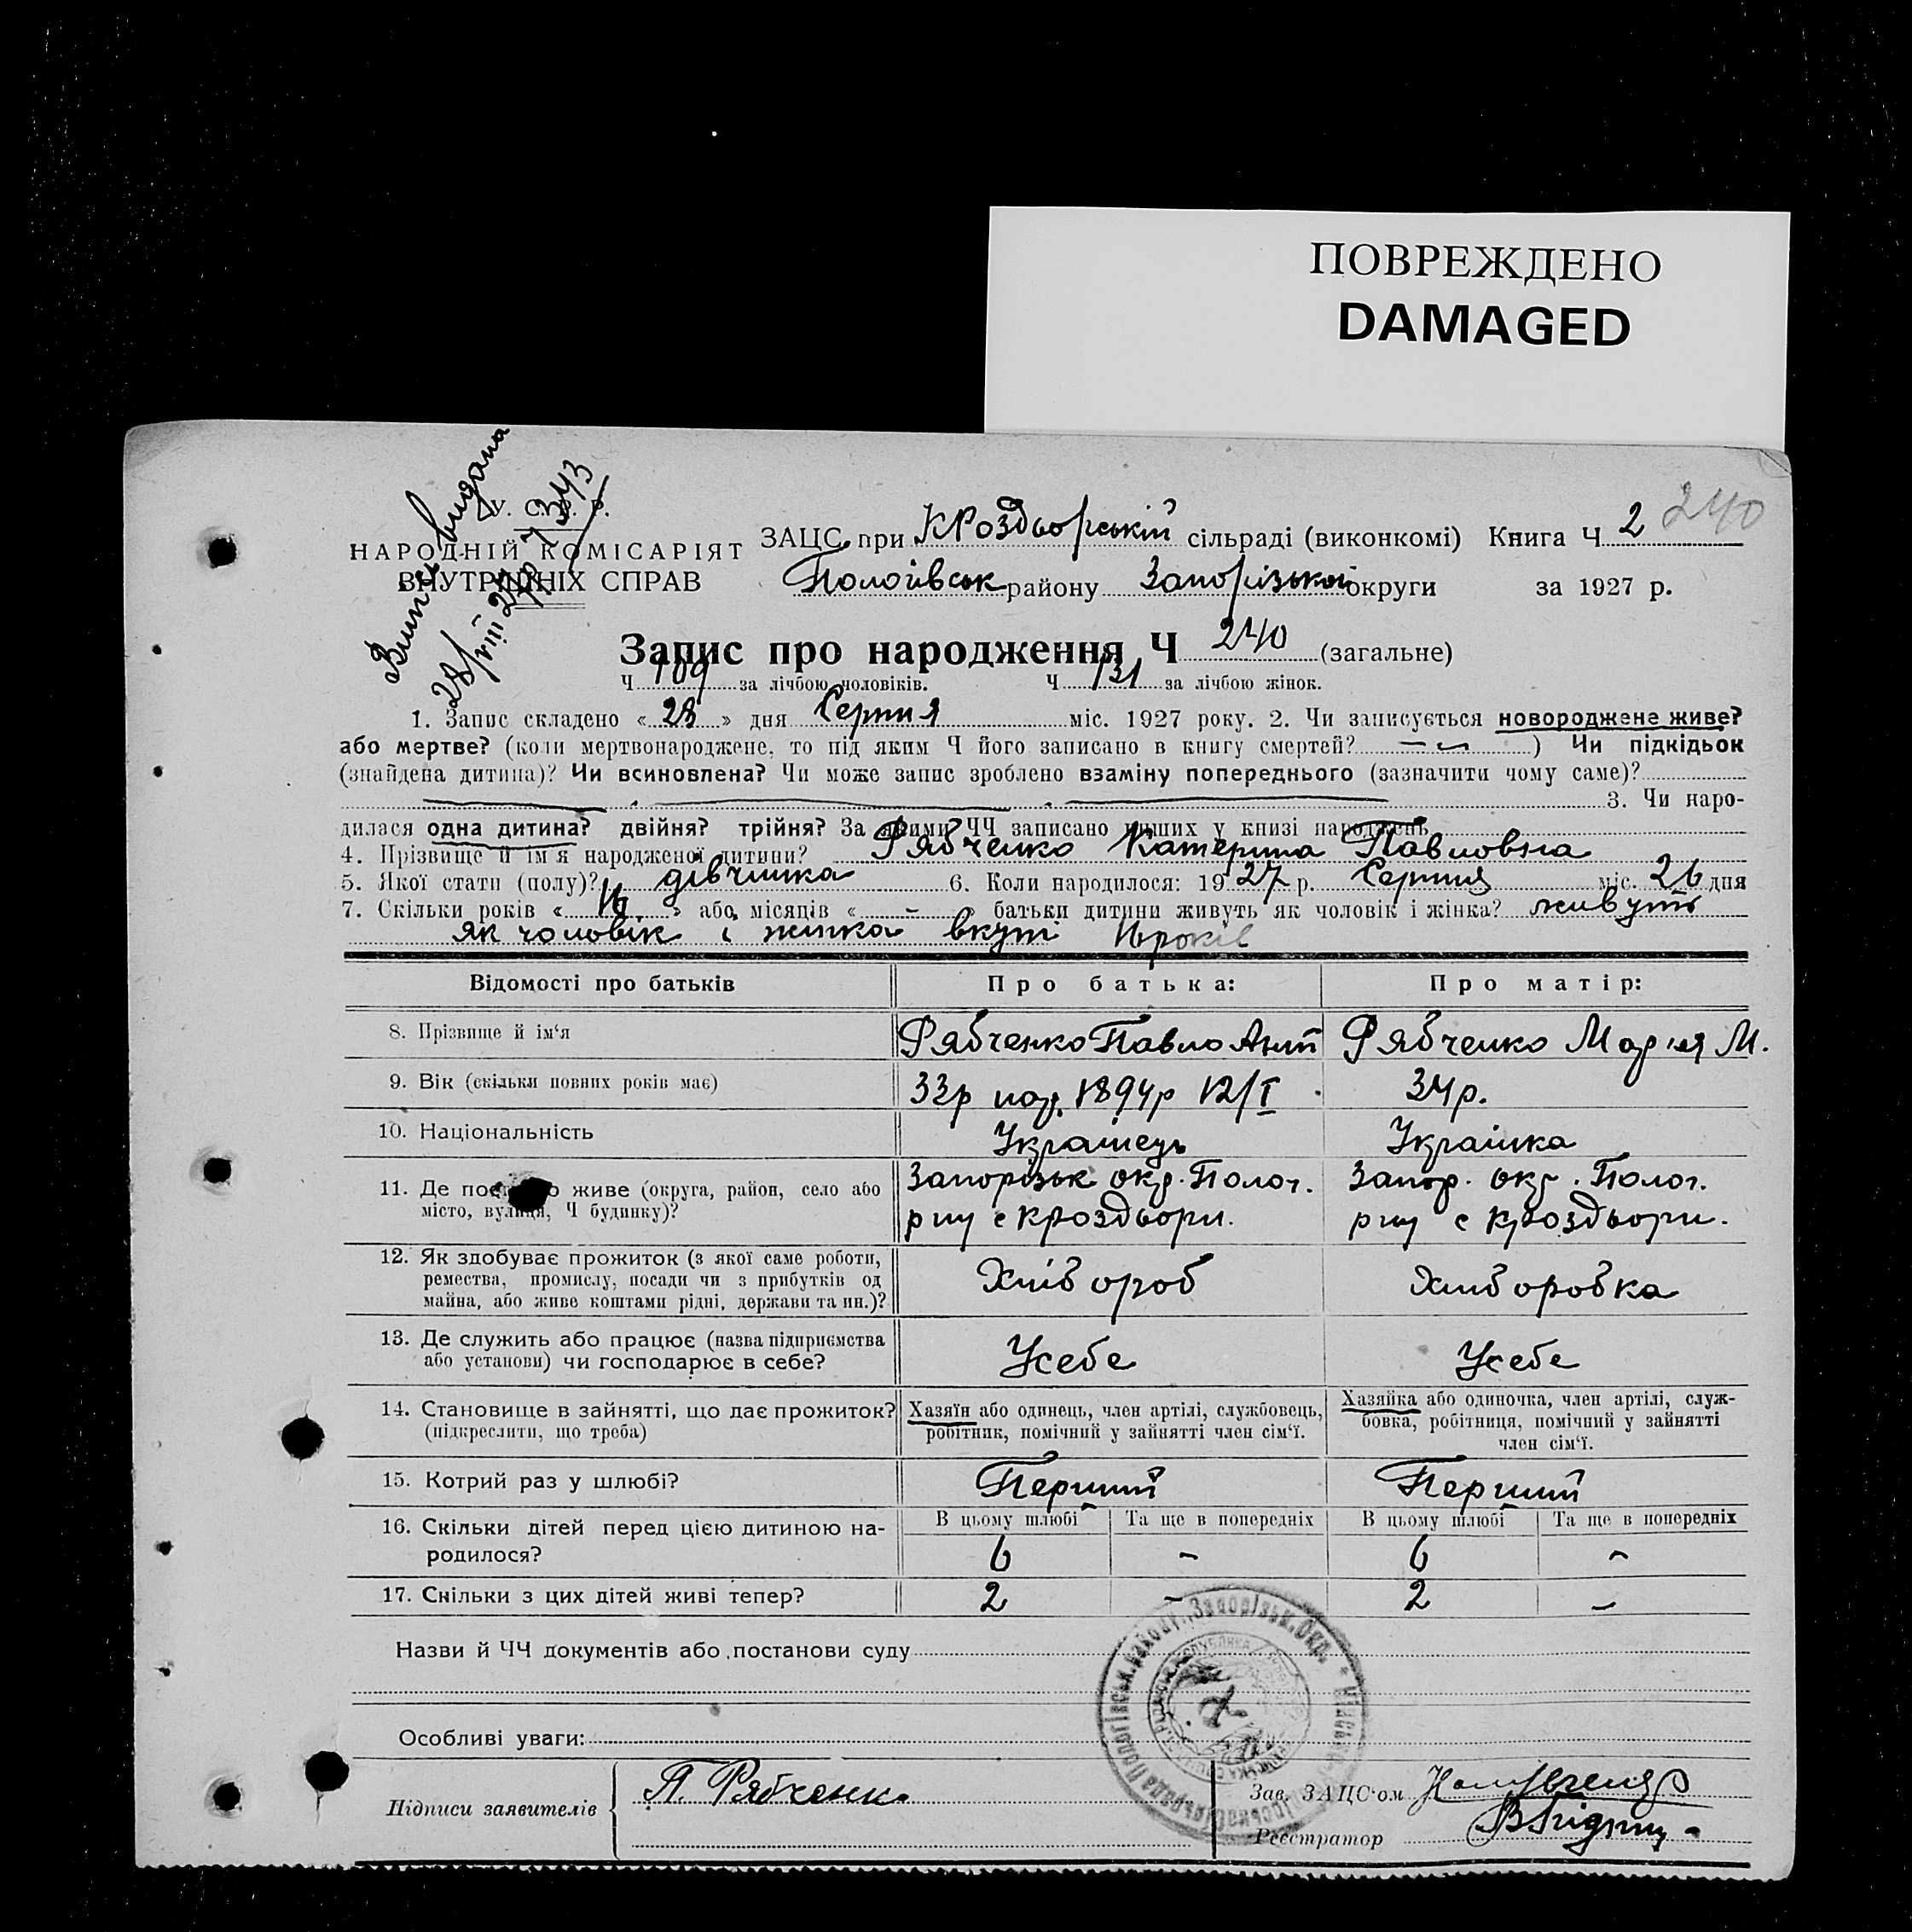 ПОВРЕЖДЕНО
DAMAGED
240
Випись видана
28/VIII 27р Ч 343
У. С. Р. Р.
НАРОДНІЙ КОМІСАРІЯТ
ВНУТРІШНІХ СПРАВ
ЗАЦС при КРоздьорській сільраді (виконкомі) Книга Ч 2
Пологівськ району Запорізької округи за 1927 р.
Запис про народження Ч 240 (загальне)
Ч 109 за лічбою чоловіків. Ч 131 за лічбою жінок.
1. Запис складено « 28 » дня Серпня міс. 1927 року. 2. Чи записується новороджене живе?
або мертве? (коли мертвонароджене, то під яким Ч його записано в книгу смертей? — ) Чи підкідьок
(знайдена дитина)? Чи всиновлена? Чи може запис зроблено взаміну попереднього (зазначити чому саме)?
3. Чи наро-
дилася одна дитина? двійня? трійня? За якими ЧЧ записано инших у книзі народжень
4. Прізвище й ім'я народженої дитини? Рябченко Катерина Павловна
5. Якої стати (полу)? дівчинка 6. Коли народилося: 1927 р. Серпня міс. 26 дня
7. Скільки років « 16 » або місяців « - » батьки дитини живуть як чоловік і жінка? живуть
як чоловік і жінка вкупі 16 років
Відомості про батьків Про батька: Про матір:
8. Прізвище й ім'я Рябченко Павло Ант Рябченко Марія М.
9. Вік (скільки повних років має) 33р нар. 1894р 12/I 34р.
10. Національність Українець Українка
11. Де постійно живе (округа, район, село або
місто, вулиця, Ч будинку)?
Запорізьк окр. Полог.
рну с Кроздьори.
Запор. окр. Полог.
рну с Кроздьори.
12. Як здобуває прожиток (з якої саме роботи,
ремества, промислу, посади чи з прибутків од
майна, або живе коштами рідні, держави та ин.)?
Хліб ороб Хліб оробка
13. Де служить або працює (назва підприємства
або установи) чи господарює в себе?
Усебе Усебе
14. Становище в зайнятті, що дає прожиток?
(підкреслити, що треба)
Хазяїн або одинець, член артілі, службовець,
робітник, помічний у зайнятті член сім'ї.
Хазяйка або одиночка, член артілі, служ-
бовка, робітниця, помічний у зайнятті
член сім'ї.
15. Котрий раз у шлюбі? Перший Перший
16. Скільки дітей перед цією дитиною на-
родилося?
В цьому шлюбі Та ще в попередніх В цьому шлюбі Та ще в попередніх
6 - 6 -
17. Скільки з цих дітей живі тепер? 2 - 2 -
Назви й ЧЧ документів або постанови суду
Особливі уваги:
Підписи заявителів П. Рябченко
Зав. ЗАЦС'ом
Реєстратор